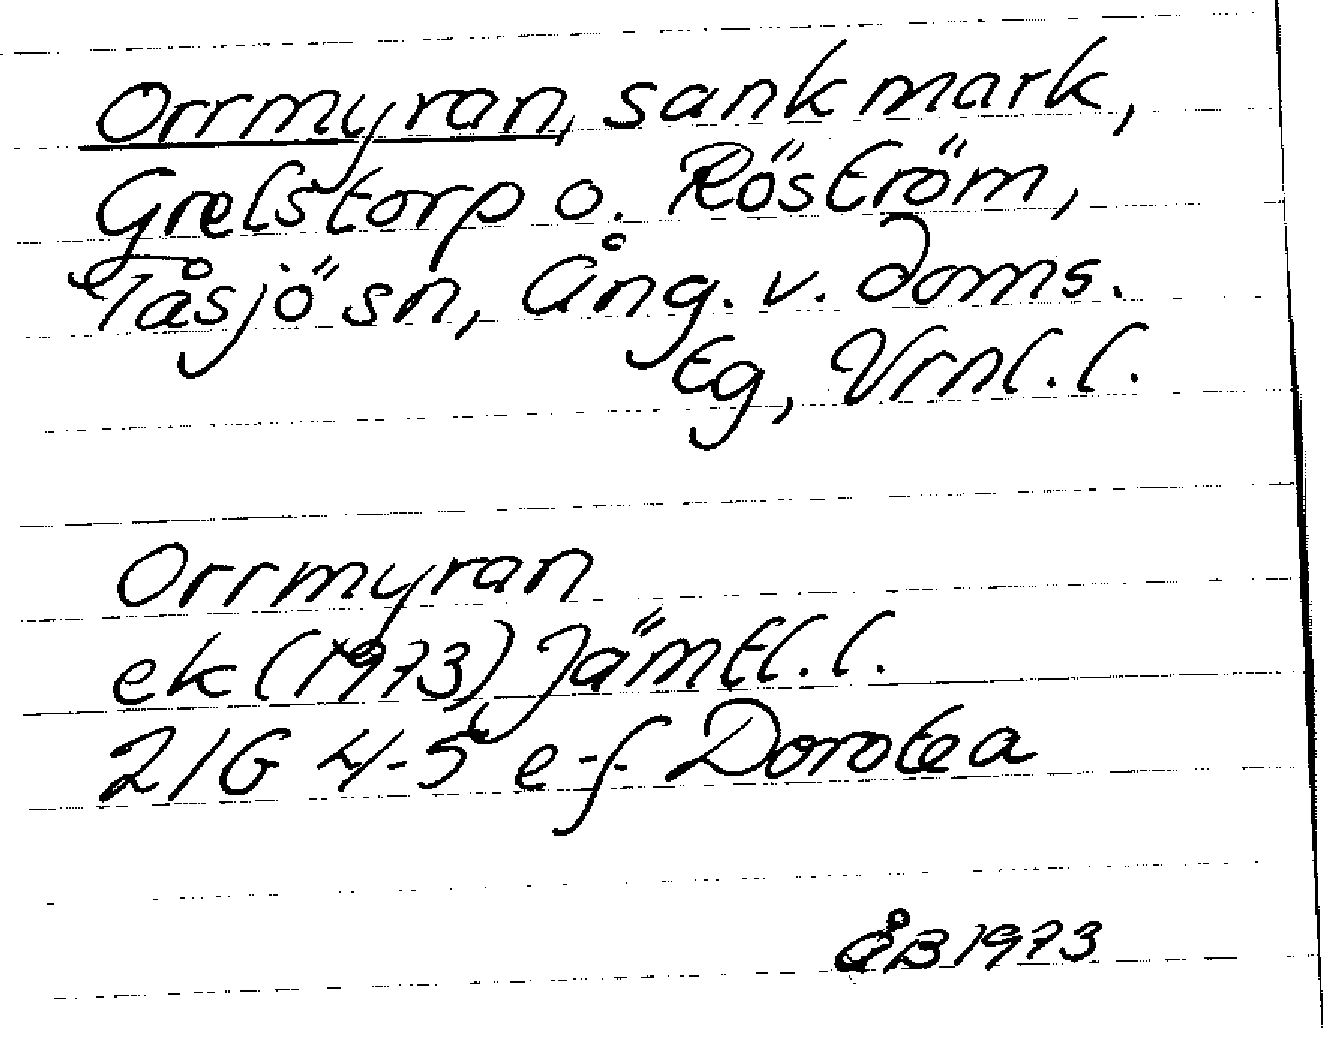 Orrmyran, sankmark,
Grelstorp o. Röström,
Tåsjö sn, Ång. v. doms.
Eg, Vrnl. l.
Orrmyran
ek (1973) Jämtl. l.
21G 4-5 e-f Dorotea
ÅB 1973